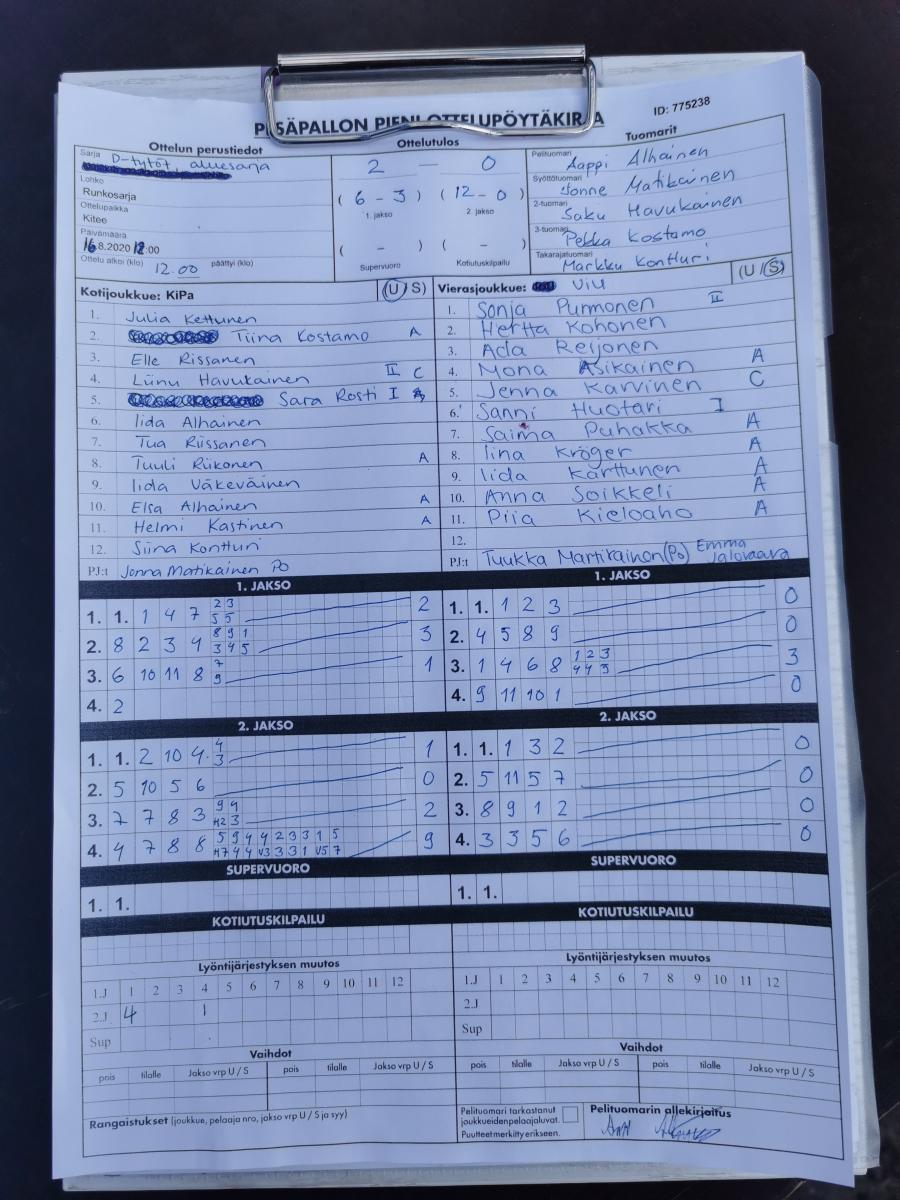 PESÄPALLON PIENI OTTELUPÖYTÄKIRJA
ID: 775238
Ottelun perustiedot
Sarja D-tytöt, aluesarja
Lohko
Runkosarja
Ottelupaikka
Kitee
Päivämäärä
16.8.2020 12:00
Ottelu alkoi (klo) 12.00 päättyi (klo)
Ottelutulos
2 — 0
( 6 - 3 ) ( 12 - 0 )
1. jakso 2. jakso
( - ) ( - )
Supervuoro Kotiutuskilpailu
Tuomarit
Pelituomari Aappi Alhainen
Syöttötuomari Jonne Matikainen
2-tuomari Saku Havukainen
3-tuomari Pekka Kostamo
Takarajatuomari Markku Kontturi
Kotijoukkue: KiPa (U / S)
1. Julia Kettunen
2. Tiina Kostamo A
3. Elle Rissanen
4. Liinu Havukainen II C
5. Sara Rosti I
6. Iida Alhainen
7. Tua Riissanen
8. Tuuli Riikonen A
9. Iida Väkeväinen
10. Elsa Alhainen A
11. Helmi Kastinen A
12. Siina Kontturi
PJ:t Jonna Matikainen Po
Vierasjoukkue: ViU (U / S)
1. Sonja Purmonen II
2. Hertta Kohonen
3. Ada Reijonen
4. Mona Asikainen A
5. Jenna Karvinen C
6. Sanni Huotari I
7. Saima Puhakka A
8. Iina Kröger A
9. Iida Karttunen A
10. Anna Soikkeli A
11. Piia Kieloaho A
12.
PJ:t Tuukka Martikainen (Po) Emma Jalovaara
1. JAKSO
1. 1. 1 4 7 2 3 2
5 5
2. 8 2 3 4 8 9 1 3
3 4 5
3. 6 10 11 8 7 1
9
4. 2
1. JAKSO
1. 1. 1 2 3 0
2. 4 5 8 9 0
3. 1 4 6 8 1 2 3 3
4 4 3
4. 9 11 10 1 0
2. JAKSO
1. 1. 2 10 4 4 1
3
2. 5 10 5 6 0
3. 7 7 8 3 9 9 2
4. 4 7 8 8 5 9 4 4 2 3 3 1 5 9
2. JAKSO
1. 1. 1 3 2 0
2. 5 11 5 7 0
3. 8 9 1 2 0
4. 3 3 5 6 0
SUPERVUORO
1. 1.
SUPERVUORO
1. 1.
KOTIUTUSKILPAILU
KOTIUTUSKILPAILU
Lyöntijärjestyksen muutos
1.J 1 2 3 4 5 6 7 8 9 10 11 12
2.J 4 1
Sup
Lyöntijärjestyksen muutos
1.J 1 2 3 4 5 6 7 8 9 10 11 12
2.J
Sup
Vaihdot
pois tilalle Jakso vrp U / S pois tilalle Jakso vrp U / S
Vaihdot
pois tilalle Jakso vrp U / S pois tilalle Jakso vrp U / S
Rangaistukset (joukkue, pelaaja nro, jakso vrp U / S ja syy)
Pelituomari tarkastanut
joukkueidenpelaajaluvat.
Puutteet merkitty erikseen.
Pelituomarin allekirjoitus